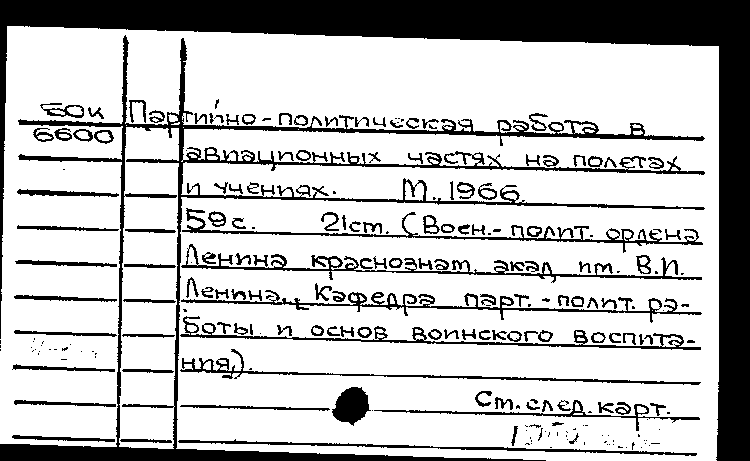 60к Партийно-политическая работа в
6600 авиационных частях на полетах
и учениях. М., 1966.
59с. 21см. (Воен.-полит. ордена
Ленина краснознам. акад. им. В.И.
Ленина. Кафедра парт.-полит. ра-
боты и основ воинского воспита-
ния).
См. след. карт.